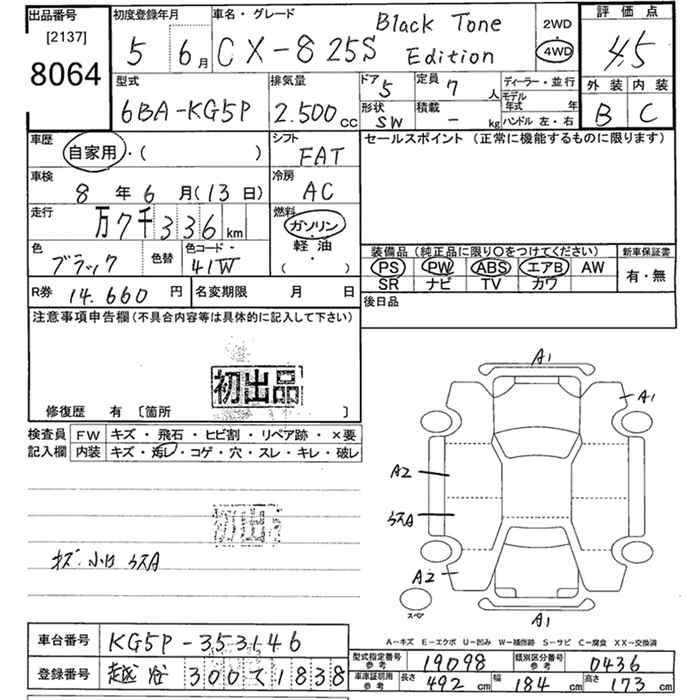 出品番号 [2137] 8064
初度登録年月 5年 6月
車名・グレード CX-8 25S Black Tone Edition
2WD 4WD
評価点 4.5
外装 B 内装 C
型式 6BA-KG5P
排気量 2.500cc
ドア 5 形状 SW
定員 7人 積載 - kg
ディーラー・並行
モデル年式 年
ハンドル 左・右
車歴 自家用・( )
シフト FAT
セールスポイント (正常に機能するものに限ります)
車検 8年6月(13日)
冷房 AC
走行 万7千336km
燃料 ガソリン・軽油・( )
色 ブラック 色替 色コード 41W
装備品 (純正品に限り〇をつけてください)
PS PW ABS エアB AW
SR ナビ TV カワ
新車保証書 有・無
R券 14.660円 名変期限 月 日
後日品
注意事項申告欄 (不具合内容等は具体的に記入して下さい)
初出品
修復歴 有 [箇所 ]
検査員記入欄
FW キズ・飛石・ヒビ割・リペア跡・×要
内装 キズ・汚レ・コゲ・穴・スレ・キレ・破レ
A1
A1
A2
A2
A1
初出品
A-キズ E-エクボ U-凹み W-補修跡 S-サビ C-腐食 XX-交換済
車台番号 KG5P-353146
登録番号 越谷 300 て1838
型式指定番号 参考 19098 類別区分番号 参考 0436
車庫証明用 参考 長さ 492cm 幅 184cm 高さ 173cm